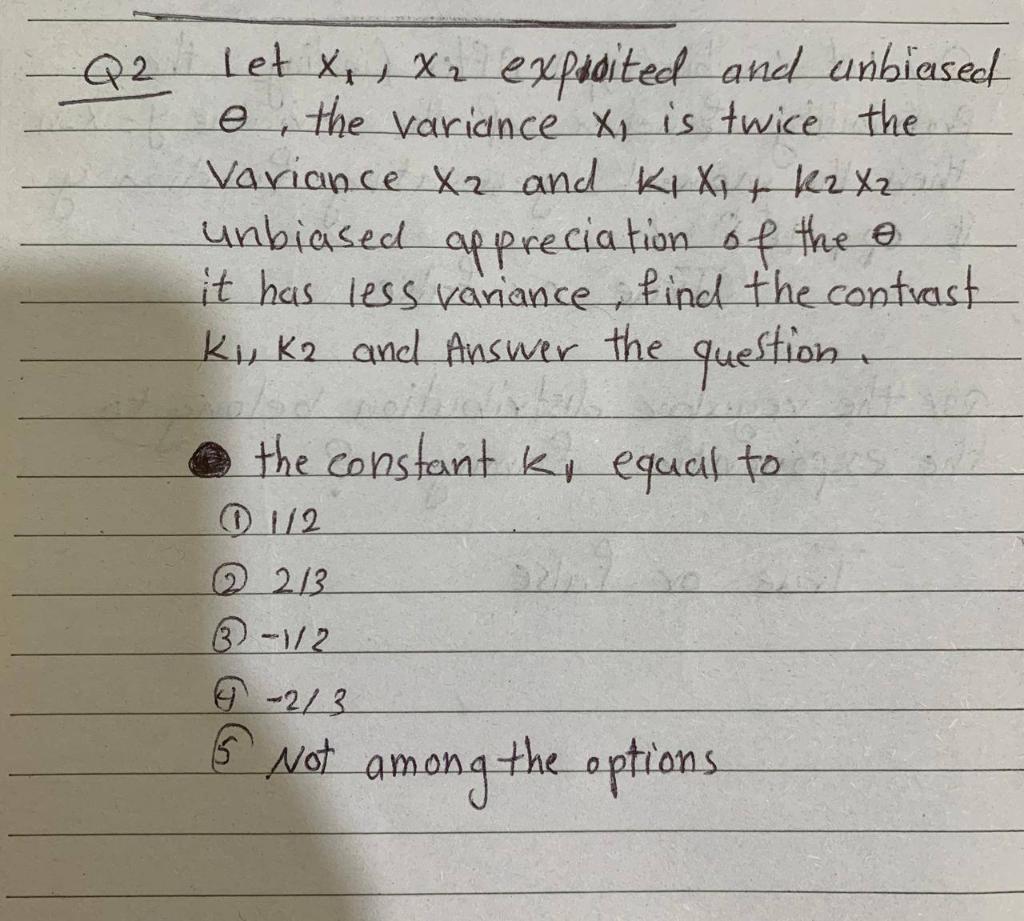 Q2 Let X₁, X₂ and unbiased
θ, the variance X₁ is twice the
Variance X₂ and K₁X₁ + K₂X₂
unbiased appreciation of the θ
it has less variance, find the contrast
K₁, K₂ and Answer the question.
the constant K₁ equal to
① 1/2
② 2/3
③ -1/2
④ -2/3
⑤ Not among the options